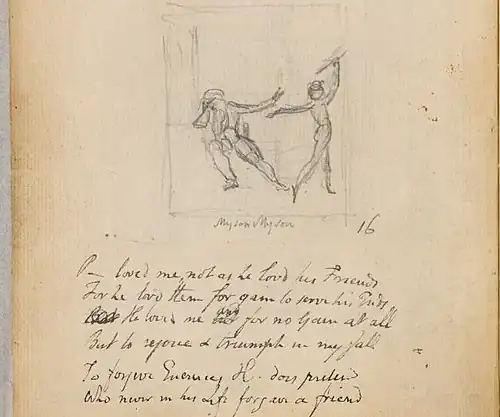 My son My son
16
P— loved me, not as he lovd his Friends
For he lovd them for gain to serve his Ends
He loved me and for no Gain at all
But to rejoice & triumph in my fall
To forgive Enemies H. does pretend
Who never in his Life forgave a friend